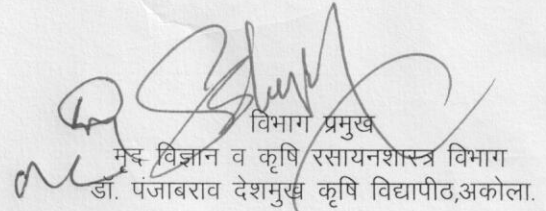 विभाग प्रमुख
मृद विज्ञान व कृषि रसायनशास्त्र विभाग
डॉ. पंजाबराव देशमुख कृषि विद्यापीठ,अकोला.